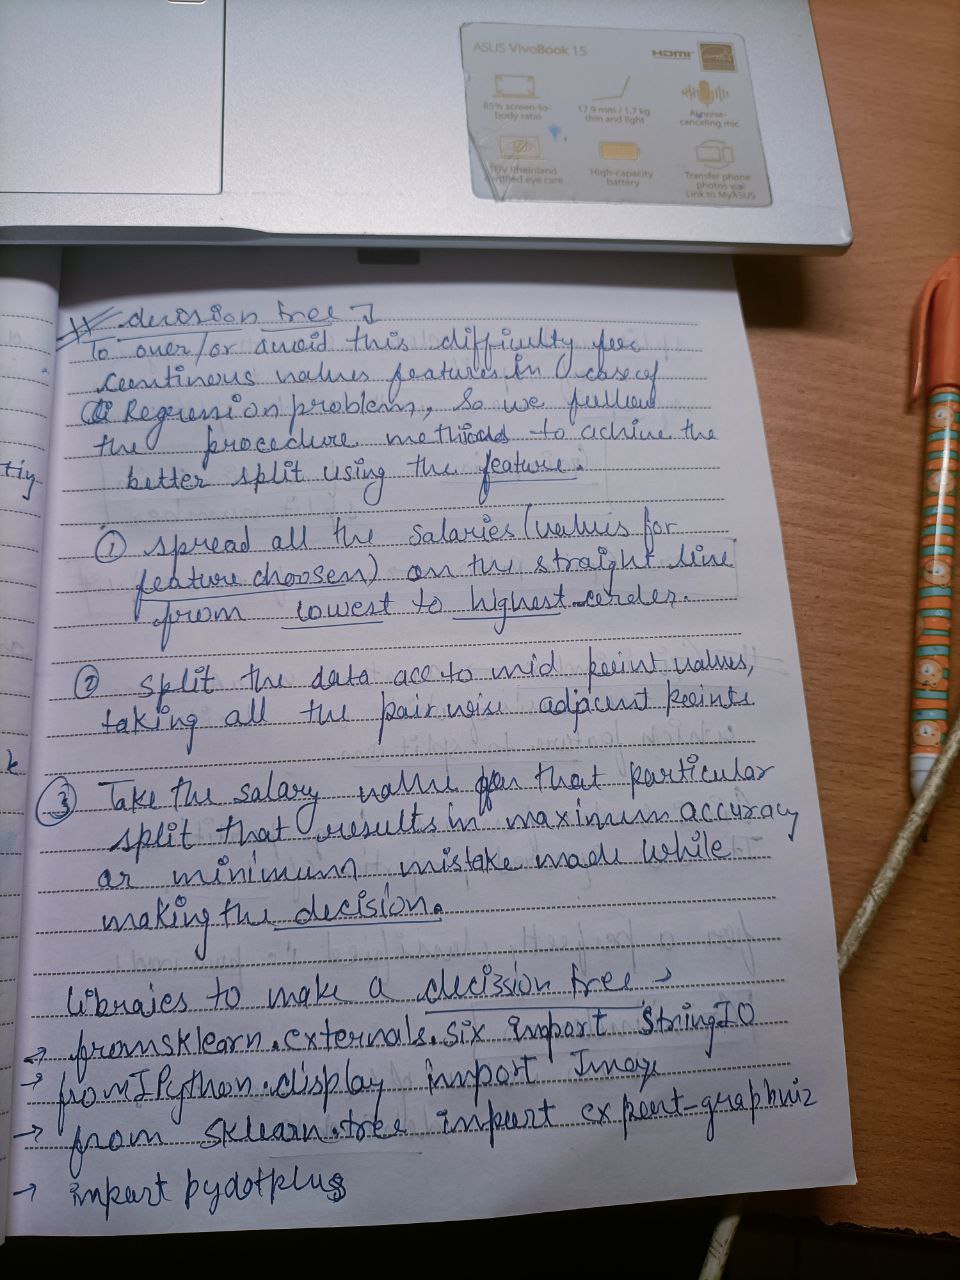 ASUS VivoBook 15
HDMI
85% screen-to-
body ratio
17.9 mm / 1.7 kg
thin and light
AI noise-
canceling mic
TÜV Rheinland
certified eye care
High-capacity
battery
Transfer phone
photos via
Link to MyASUS
decision tree
To over/or avoid this difficulty for
continous values features in case of
Regression problems, So we follow
the procedure methods to achive the
better split using the feature.
① spread all the salaries (values for
feature choosen) on the straight line
from lowest to highest order.
② split the data acc to mid point values,
taking all the pair wise adjacent points
③ Take the salary value for that particular
split that results in maximum accuracy
or minimum mistake made while
making the decision.
libraies to make a decission tree →
→ from sklearn.externals.six import StringIO
→ from IPython.display import Image
→ from sklearn.tree import export-graphviz
→ import pydotplus
tiy
k